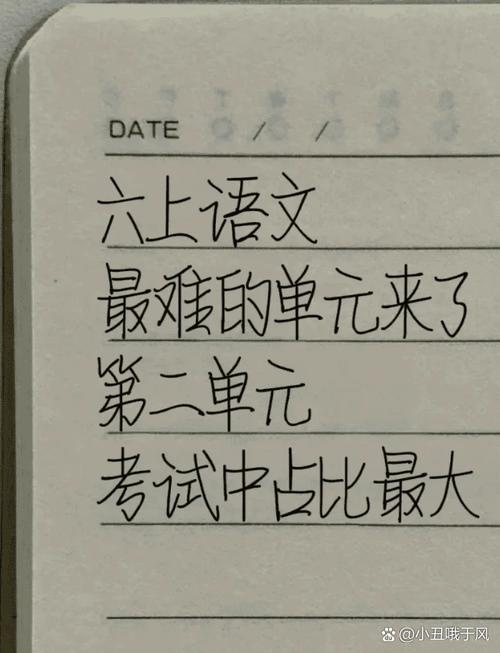 DATE / /
六上语文
最难的单元来了
第二单元
考试中占比最大
@小丑哦于风